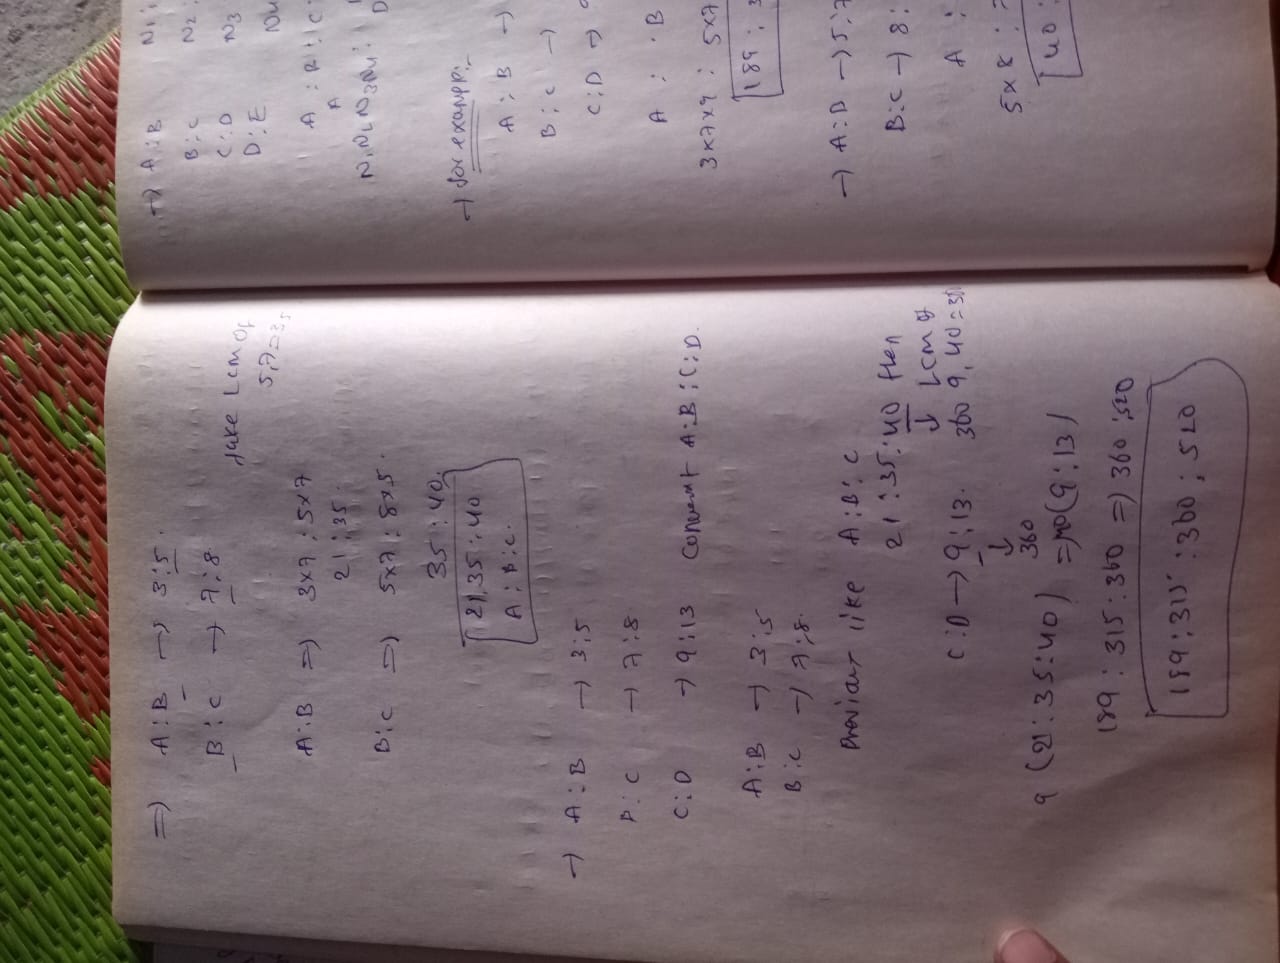 =) A:B → 3:5.
B:C → 7:8
take LCM of
5,7=35
A:B => 3x7 : 5x7
21:35.
B:C => 5x7 : 8x5.
35:40.
21,35:40
A:B:C.
→ A:B → 3:5
B:C → 7:8
C:D → 9:13 convert A:B:C:D.
A:B → 3:5
B:C → 7:8.
like A:B:C
21:35:40 then
↓ LCM of
C:D → 9:13. 360 9,40=
↓
360
9(21:35:40) = 40(9:13)
189:315:360 => 360:520
189:315:360:520
→ A:B N1:
B:C N2:
C:D N3
D:E N4
A:B:C:
N1N2N3N4: D
→ for example:-
A:B →
B:C →
C:D →
A : B
3x7x9 : 5x7
189:3
→ A:B → 5:7
B:C → 8:
A :
5x8 : 7
40: